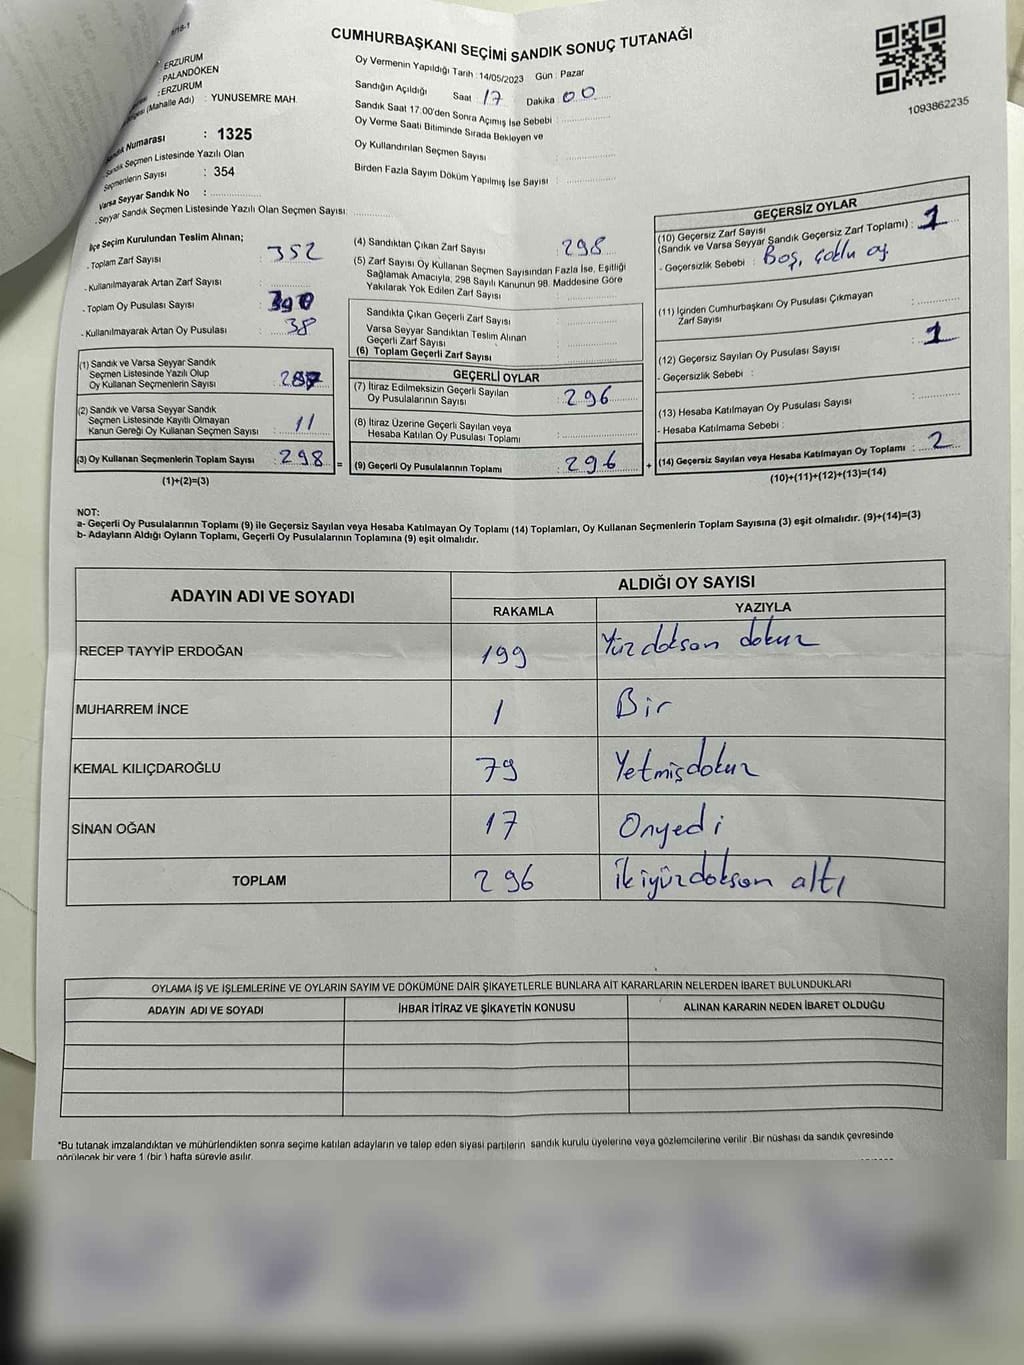 CUMHURBAŞKANI SEÇİMİ SANDIK SONUÇ TUTANAĞI
ERZURUM
PALANDÖKEN
:ERZURUM
(Mahalle Adı) : YUNUSEMRE MAH.
Numarası : 1325
Sandık Seçmen Listesinde Yazılı Olan
Seçmenlerin Sayısı : 354
Varsa Seyyar Sandık No :
.Seyyar Sandık Seçmen Listesinde Yazılı Olan Seçmen Sayısı:
Oy Vermenin Yapıldığı Tarih :14/05/2023 Gün : Pazar
Sandığın Açıldığı Saat 17 Dakika 00
Sandık Saat 17:00'den Sonra Açımış Ise Sebebi :
Oy Verme Saati Bitiminde Sırada Bekleyen ve
Oy Kullandırılan Seçmen Sayısı :
Birden Fazla Sayım Döküm Yapılmış İse Sayısı :
1093862235
İlçe Seçim Kurulundan Teslim Alınan;
.Toplam Zarf Sayısı : 352
.Kullanılmayarak Artan Zarf Sayısı :
.Toplam Oy Pusulası Sayısı :
.Kullanılmayarak Artan Oy Pusulası : 38
(1) Sandık ve Varsa Seyyar Sandık
Seçmen Listesinde Yazılı Olup
Oy Kullanan Seçmenlerin Sayısı : 287
(2) Sandık ve Varsa Seyyar Sandık
Seçmen Listesinde Kayıtlı Olmayan
Kanun Gereği Oy Kullanan Seçmen Sayısı : 11
(3) Oy Kullanan Seçmenlerin Toplam Sayısı : 298
(1)+(2)=(3)
(4) Sandıktan Çıkan Zarf Sayısı : 298
(5) Zarf Sayısı Oy Kullanan Seçmen Sayısından Fazla İse, Eşitliği
Sağlamak Amacıyla; 298 Sayılı Kanunun 98. Maddesine Göre
Yakılarak Yok Edilen Zarf Sayısı :
Sandıkta Çıkan Geçerli Zarf Sayısı :
Varsa Seyyar Sandıktan Teslim Alınan
Geçerli Zarf Sayısı :
(6) Toplam Geçerli Zarf Sayısı
GEÇERLİ OYLAR
(7) İtiraz Edilmeksizin Geçerli Sayılan
Oy Pusulalarının Sayısı : 296
(8) İtiraz Üzerine Geçerli Sayılan veya
Hesaba Katılan Oy Pusulası Toplamı :
= (9) Geçerli Oy Pusulalarının Toplamı : 296 +
GEÇERSİZ OYLAR
(10) Geçersiz Zarf Sayısı
(Sandık ve Varsa Seyyar Sandık Geçersiz Zarf Toplamı) : 1
- Geçersizlik Sebebi : Boş, çoklu oy.
(11) İçinden Cumhurbaşkanı Oy Pusulası Çıkmayan
Zarf Sayısı :
(12) Geçersiz Sayılan Oy Pusulası Sayısı : 1
- Geçersizlik Sebebi :
(13) Hesaba Katılmayan Oy Pusulası Sayısı :
- Hesaba Katılmama Sebebi :
(14) Geçersiz Sayılan veya Hesaba Katılmayan Oy Toplamı : 2
(10)+(11)+(12)+(13)=(14)
NOT:
a- Geçerli Oy Pusulalarının Toplamı (9) ile Geçersiz Sayılan veya Hesaba Katılmayan Oy Toplamı (14) Toplamları, Oy Kullanan Seçmenlerin Toplam Sayısına (3) eşit olmalıdır. (9)+(14)=(3)
b- Adayların Aldığı Oyların Toplamı, Geçerli Oy Pusulalarının Toplamına (9) eşit olmalıdır.
ADAYIN ADI VE SOYADI ALDIĞI OY SAYISI
RAKAMLA YAZIYLA
RECEP TAYYİP ERDOĞAN 199 Yüz doksan dokuz
MUHARREM İNCE 1 Bir
KEMAL KILIÇDAROĞLU 79 Yetmişdokuz
SİNAN OĞAN 17 Onyedi
TOPLAM 296 İkiyüzdoksan altı
OYLAMA İŞ VE İŞLEMLERİNE VE OYLARIN SAYIM VE DÖKÜMÜNE DAİR ŞİKAYETLERLE BUNLARA AİT KARARLARIN NELERDEN İBARET BULUNDUKLARI
ADAYIN ADI VE SOYADI İHBAR İTİRAZ VE ŞİKAYETİN KONUSU ALINAN KARARIN NEDEN İBARET OLDUĞU
*Bu tutanak imzalandıktan ve mühürlendikten sonra seçime katılan adayların ve talep eden siyasi partilerin sandık kurulu üyelerine veya gözlemcilerine verilir .Bir nüshası da sandık çevresinde
görülecek bir yere 1 (bir ) hafta süreyle asılır.